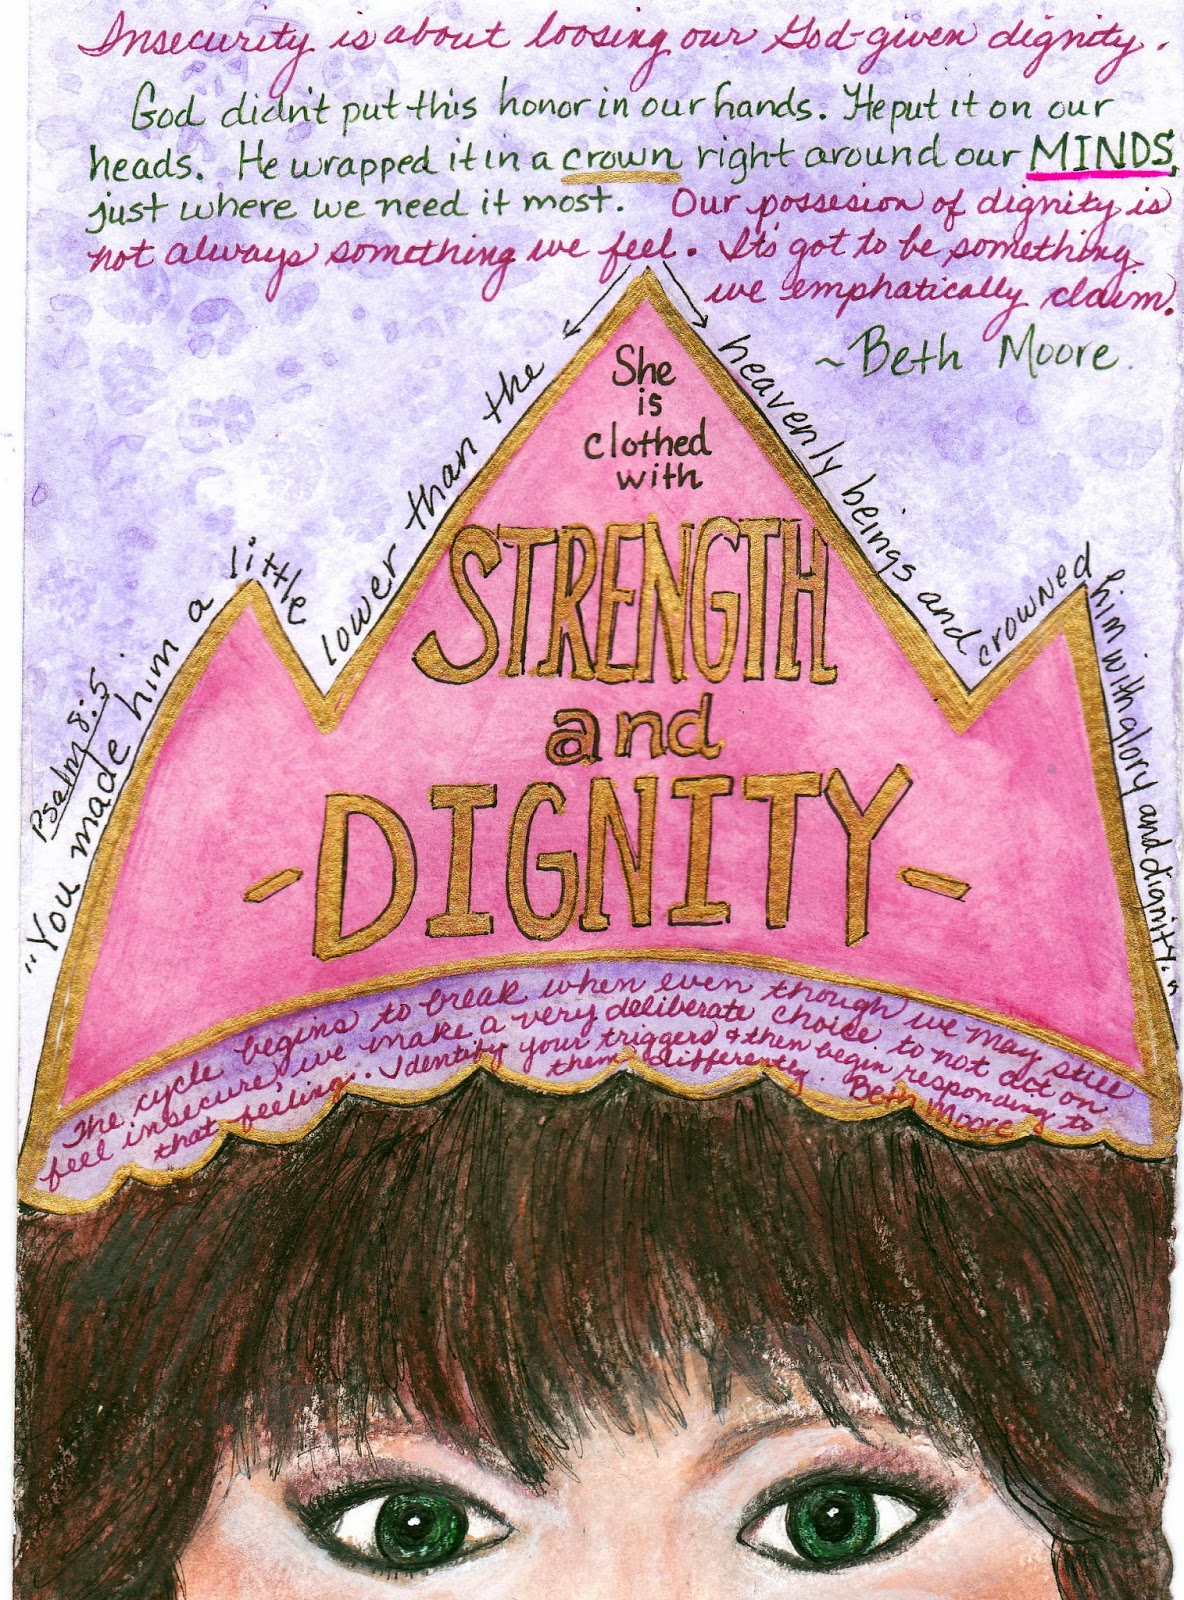 Insecurity is about loosing our God-given dignity.
God didn't put this honor in our hands. He put it on our
heads. He wrapped it in a crown right around our MINDS,
just where we need it most. Our possesion of dignity is
not always something we feel. It's got to be something
we emphatically claim.
~Beth Moore.
Psalm 8:5
"You made him a little lower than the heavenly beings and crowned him with glory and dignity."
She
is
clothed
with
STRENGTH
and
-DIGNITY-
The cycle begins to break when even though we may still
feel insecure, we make a very deliberate choice to not act on
that feeling... Identify your triggers & then begin responding to
them differently. Beth Moore